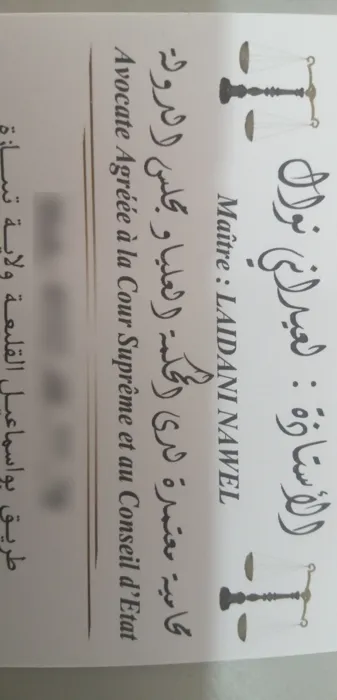 الأستاذة : لعيداني نوال
Maître : LAIDANI NAWEL
محامية معتمدة لدى المحكمة العليا و مجلس الدولة
Avocate Agréée à la Cour Suprême et au Conseil d'Etat
طريق بواسماعيل القليعة ولاية تيبازة